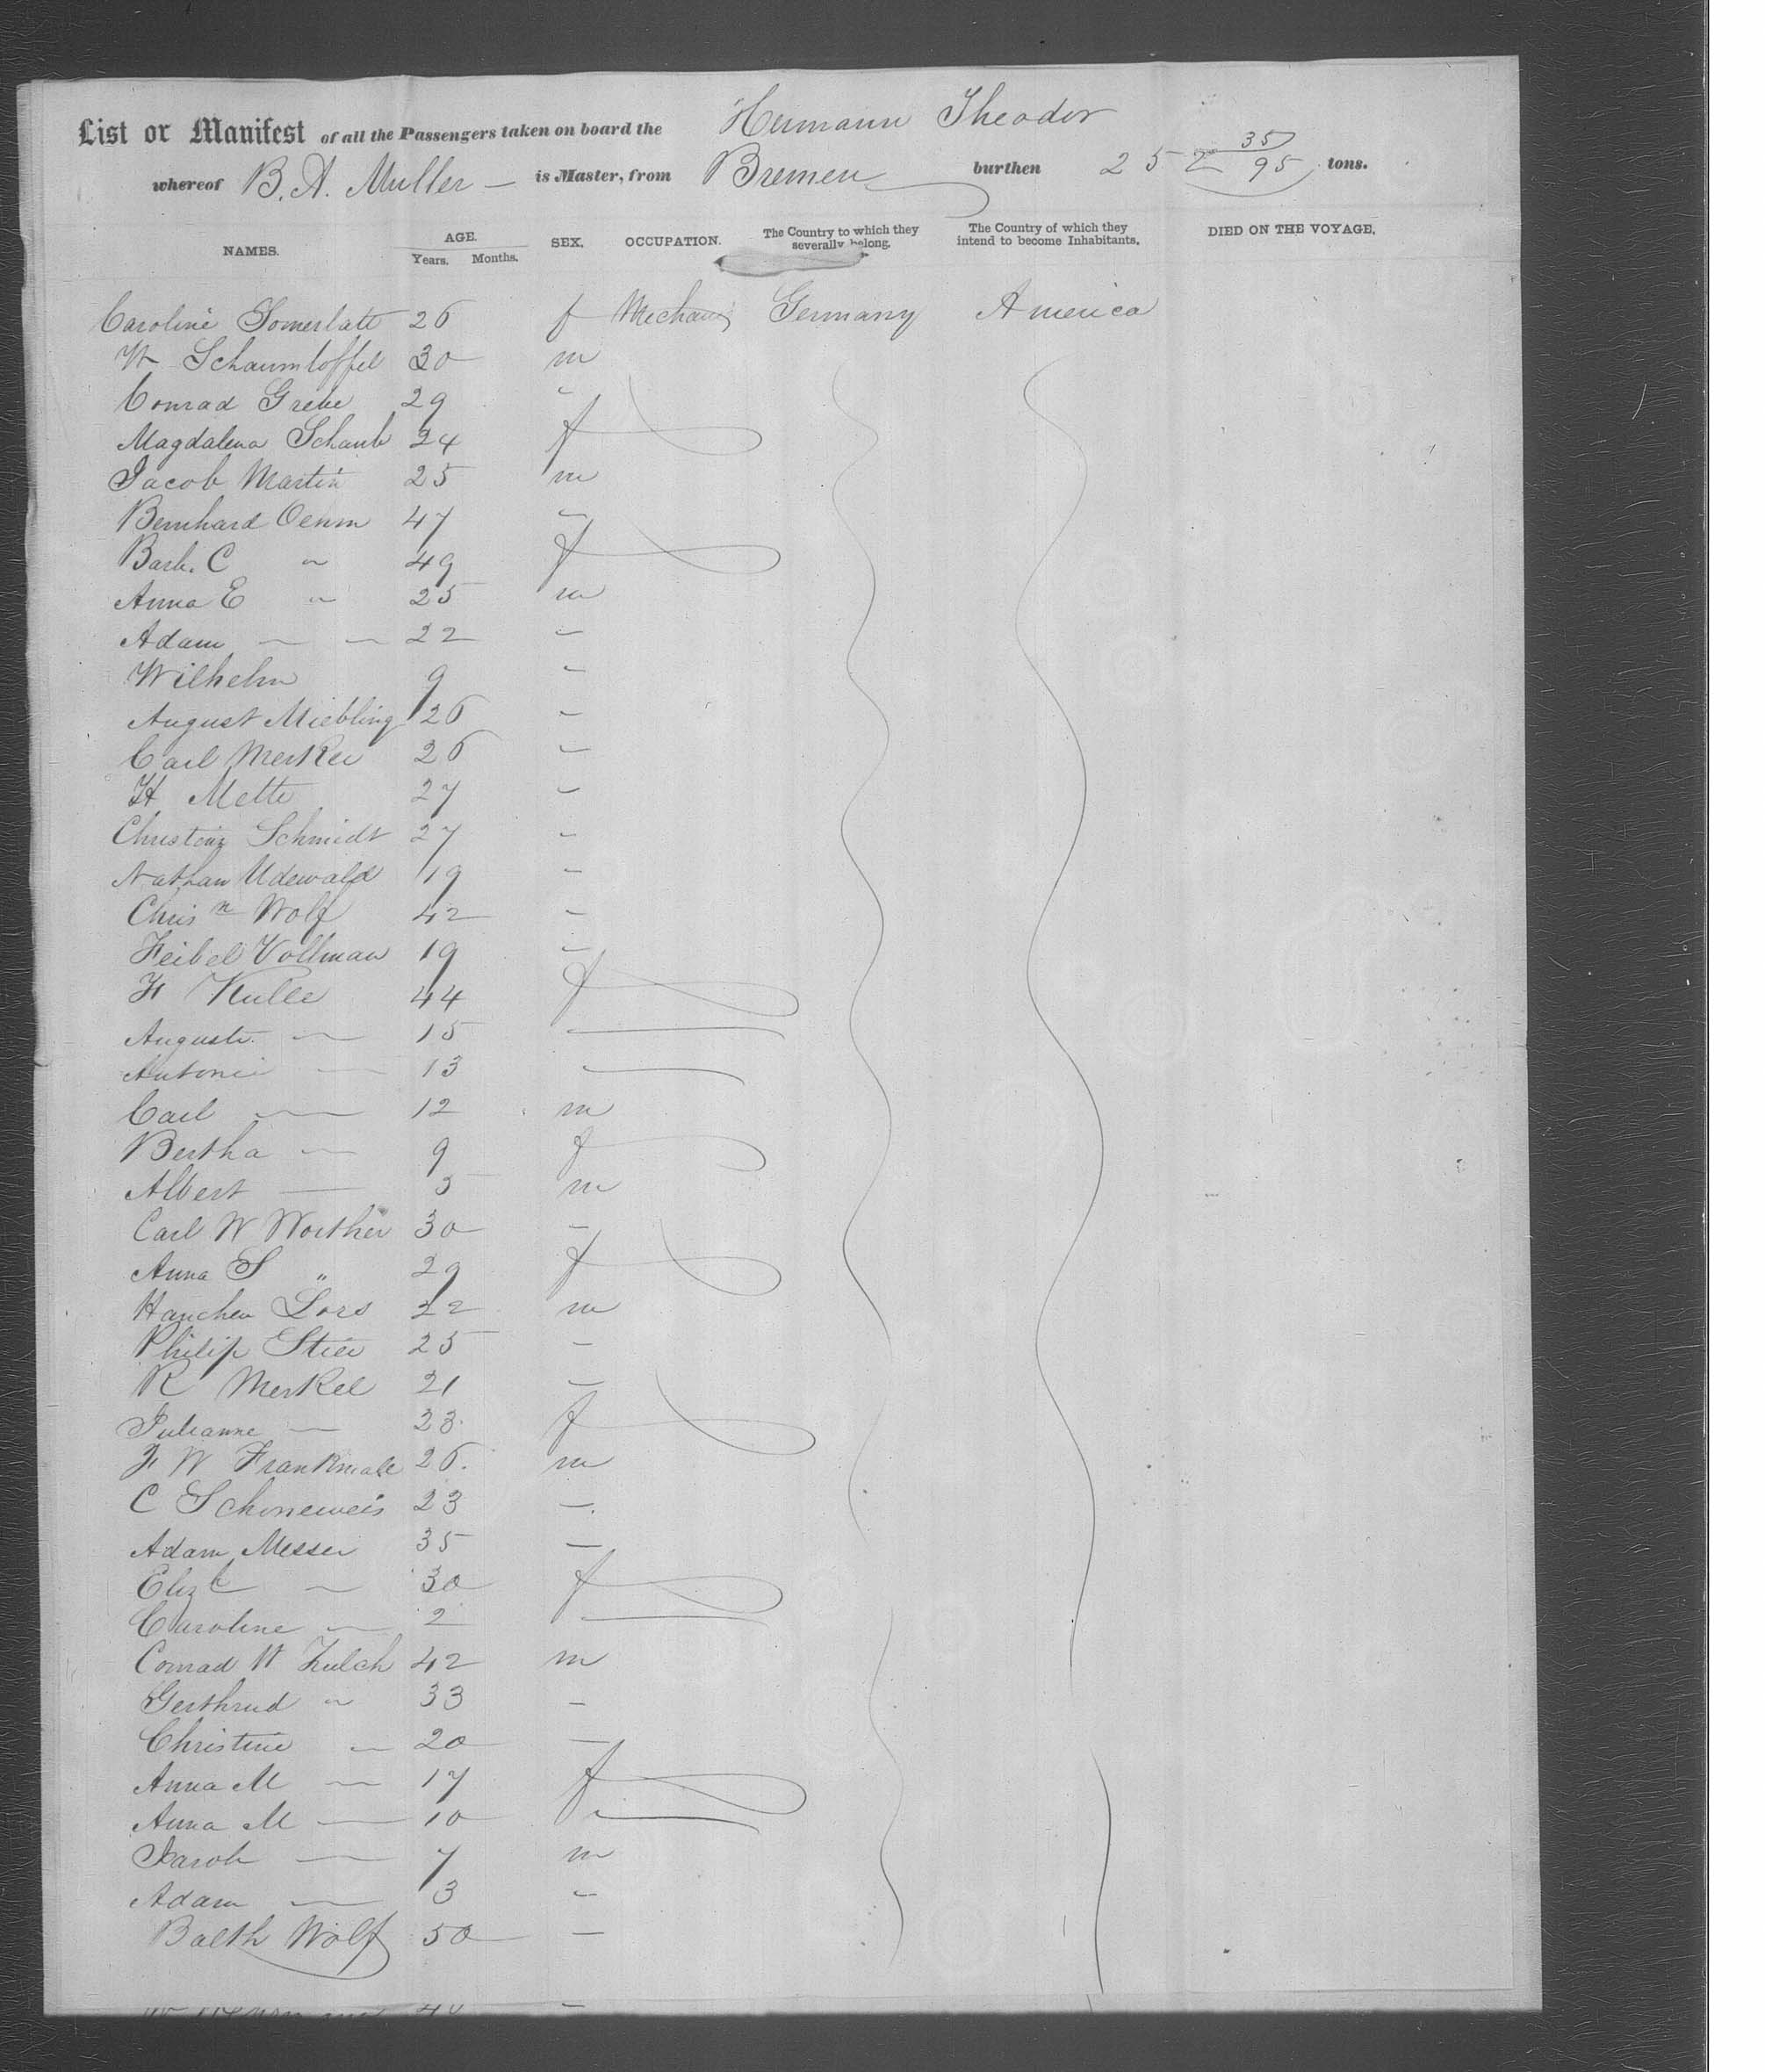 List or Manifest of all the Passengers taken on board the Hermann Theodor
whereof B. A. Muller is Master, from Bremen burthen 252 35/95 tons.
NAMES. AGE. Years. Months. SEX. OCCUPATION. The Country to which they severally belong. The Country of which they intend to become Inhabitants. DIED ON THE VOYAGE.
Caroline Somerlatt 26 f Mechanic Germany America
W Schaumloffel 30 m
Conrad Grebe 29 "
Magdalena Schaub 24 f
Jacob Martin 25 m
Bernhard Oehm 47 "
Barb. C " 49 f
Anna E " 25 m
Adam — — 22 "
Wilhelm 9 "
August Miebling 26 "
Carl Merker 26 "
H Mette 27 "
Christing Schmidt 27 "
Nathan Udewald 19 "
Chris n Wolf 42 "
Feibel Vollman 19 "
F Kulle 44 f
Auguste — 15 —
Antonie — 13 —
Carl — 12 m
Bertha — 9 f
Albert — 5 m
Carl W Worther 30 —
Anna S " 29 f
Hanchen Lors 22 m
Philip Stier 25 —
R Merkel 21 —
Julianne — 23 f
F W Frankmale 26. m
C Schoneweis 23 —
Adam Messer 35 —
Elizb — 30 f
Caroline — 2 —
Conrad H Zulch 42 m
Gerthrud " 33 —
Christine — 20 —
Anna M — 17 f
Anna M — 10 —
Jacob — 7 m
Adam — 3 "
Balth Wolf 50 —